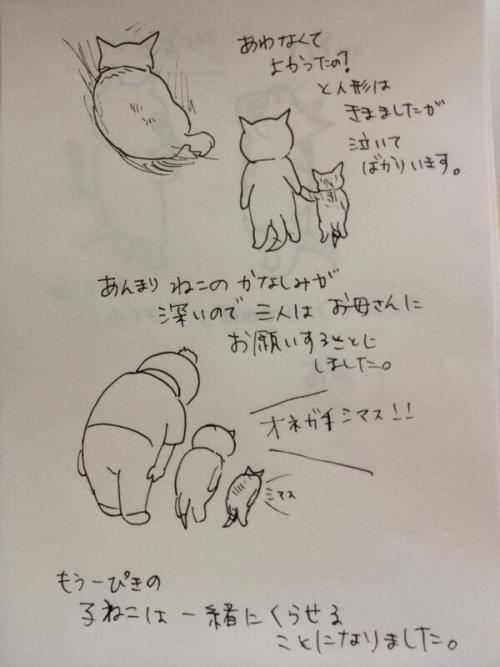 あわなくて
よかったの?
と人形は
ききましたが
泣いて
ばかりいます。
あんまり ねこの かなしみが
深いので 三人は お母さんに
お願いすることに
しました。
オネガイシマス!!
ミマス
もう一ぴきの
子ねこは 一緒にくらせる
ことになりました。